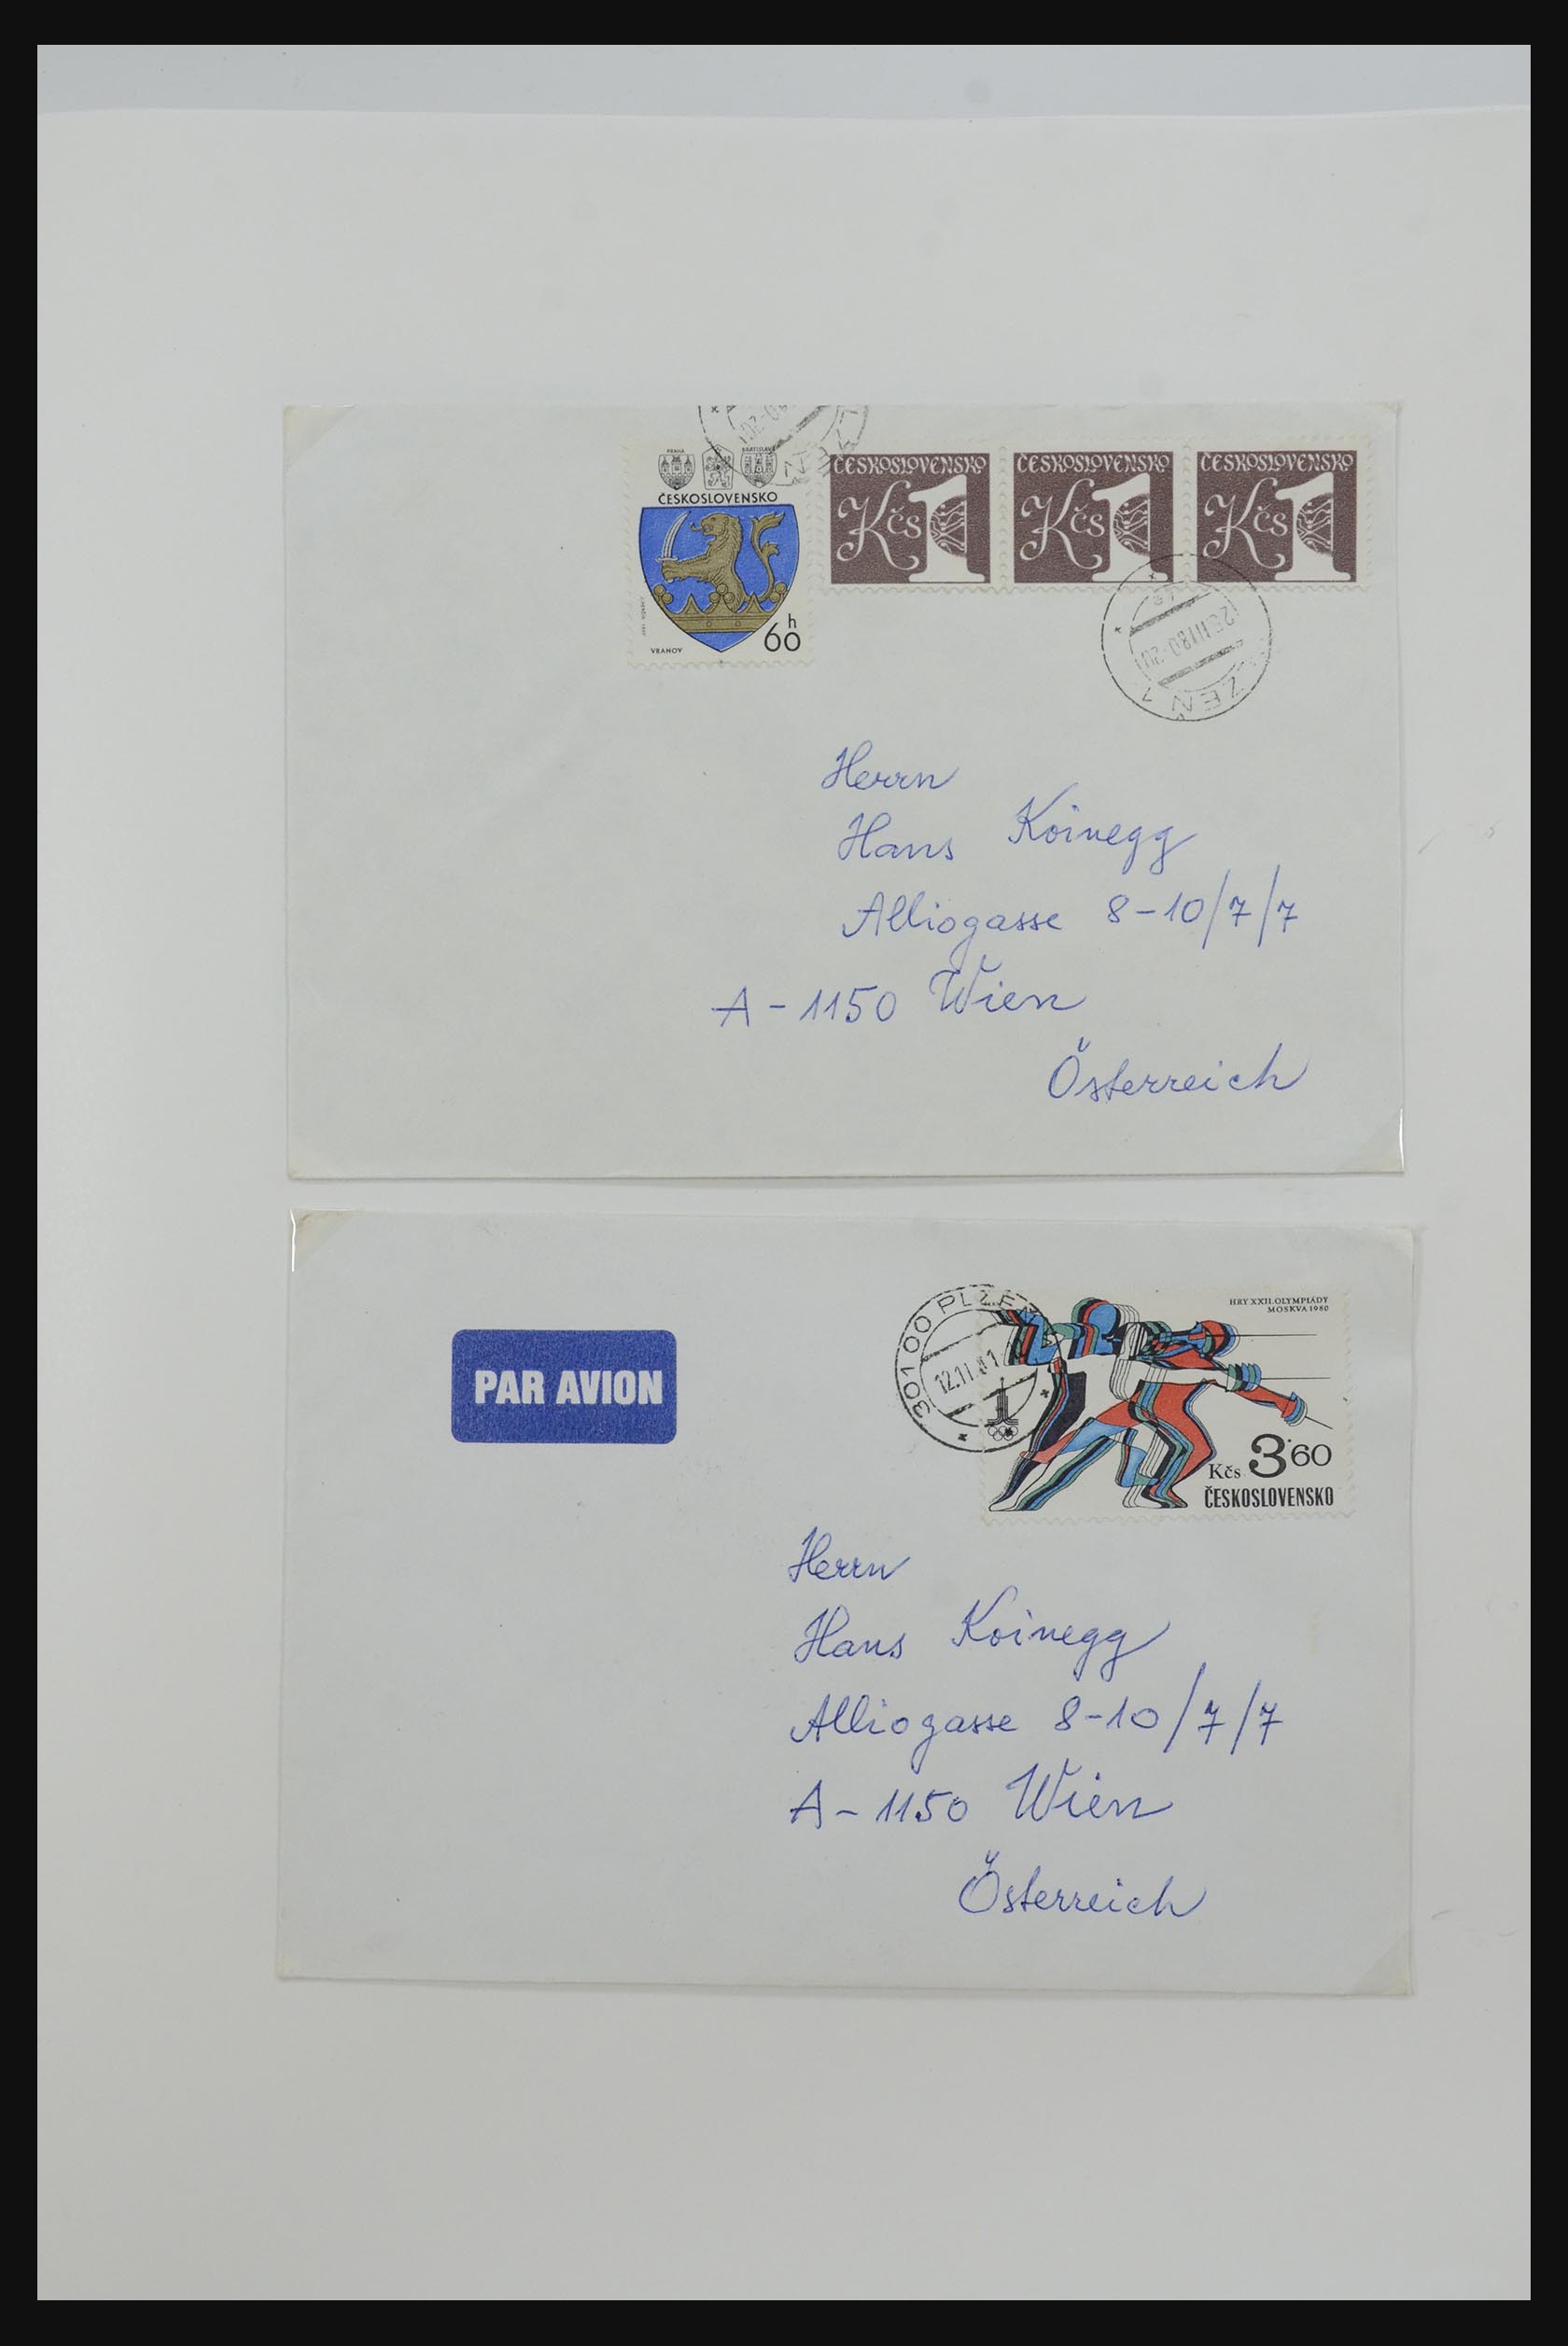 PRAHA
BRATISLAVA
ČESKOSLOVENSKO
60 h
VRANOV
ČESKOSLOVENSKO
Kčs 1
ČESKOSLOVENSKO
Kčs 1
ČESKOSLOVENSKO
Kčs 1
Herrn
Hans Koinegg
Alliogasse 8-10/7/7
A-1150 Wien
Österreich
PAR AVION
301 00 PLZEŇ 1
HRY XXII. OLYMPIÁDY
MOSKVA 1980
Kčs 3·60
ČESKOSLOVENSKO
Herrn
Hans Koinegg
Alliogasse 8-10/7/7
A-1150 Wien
Österreich